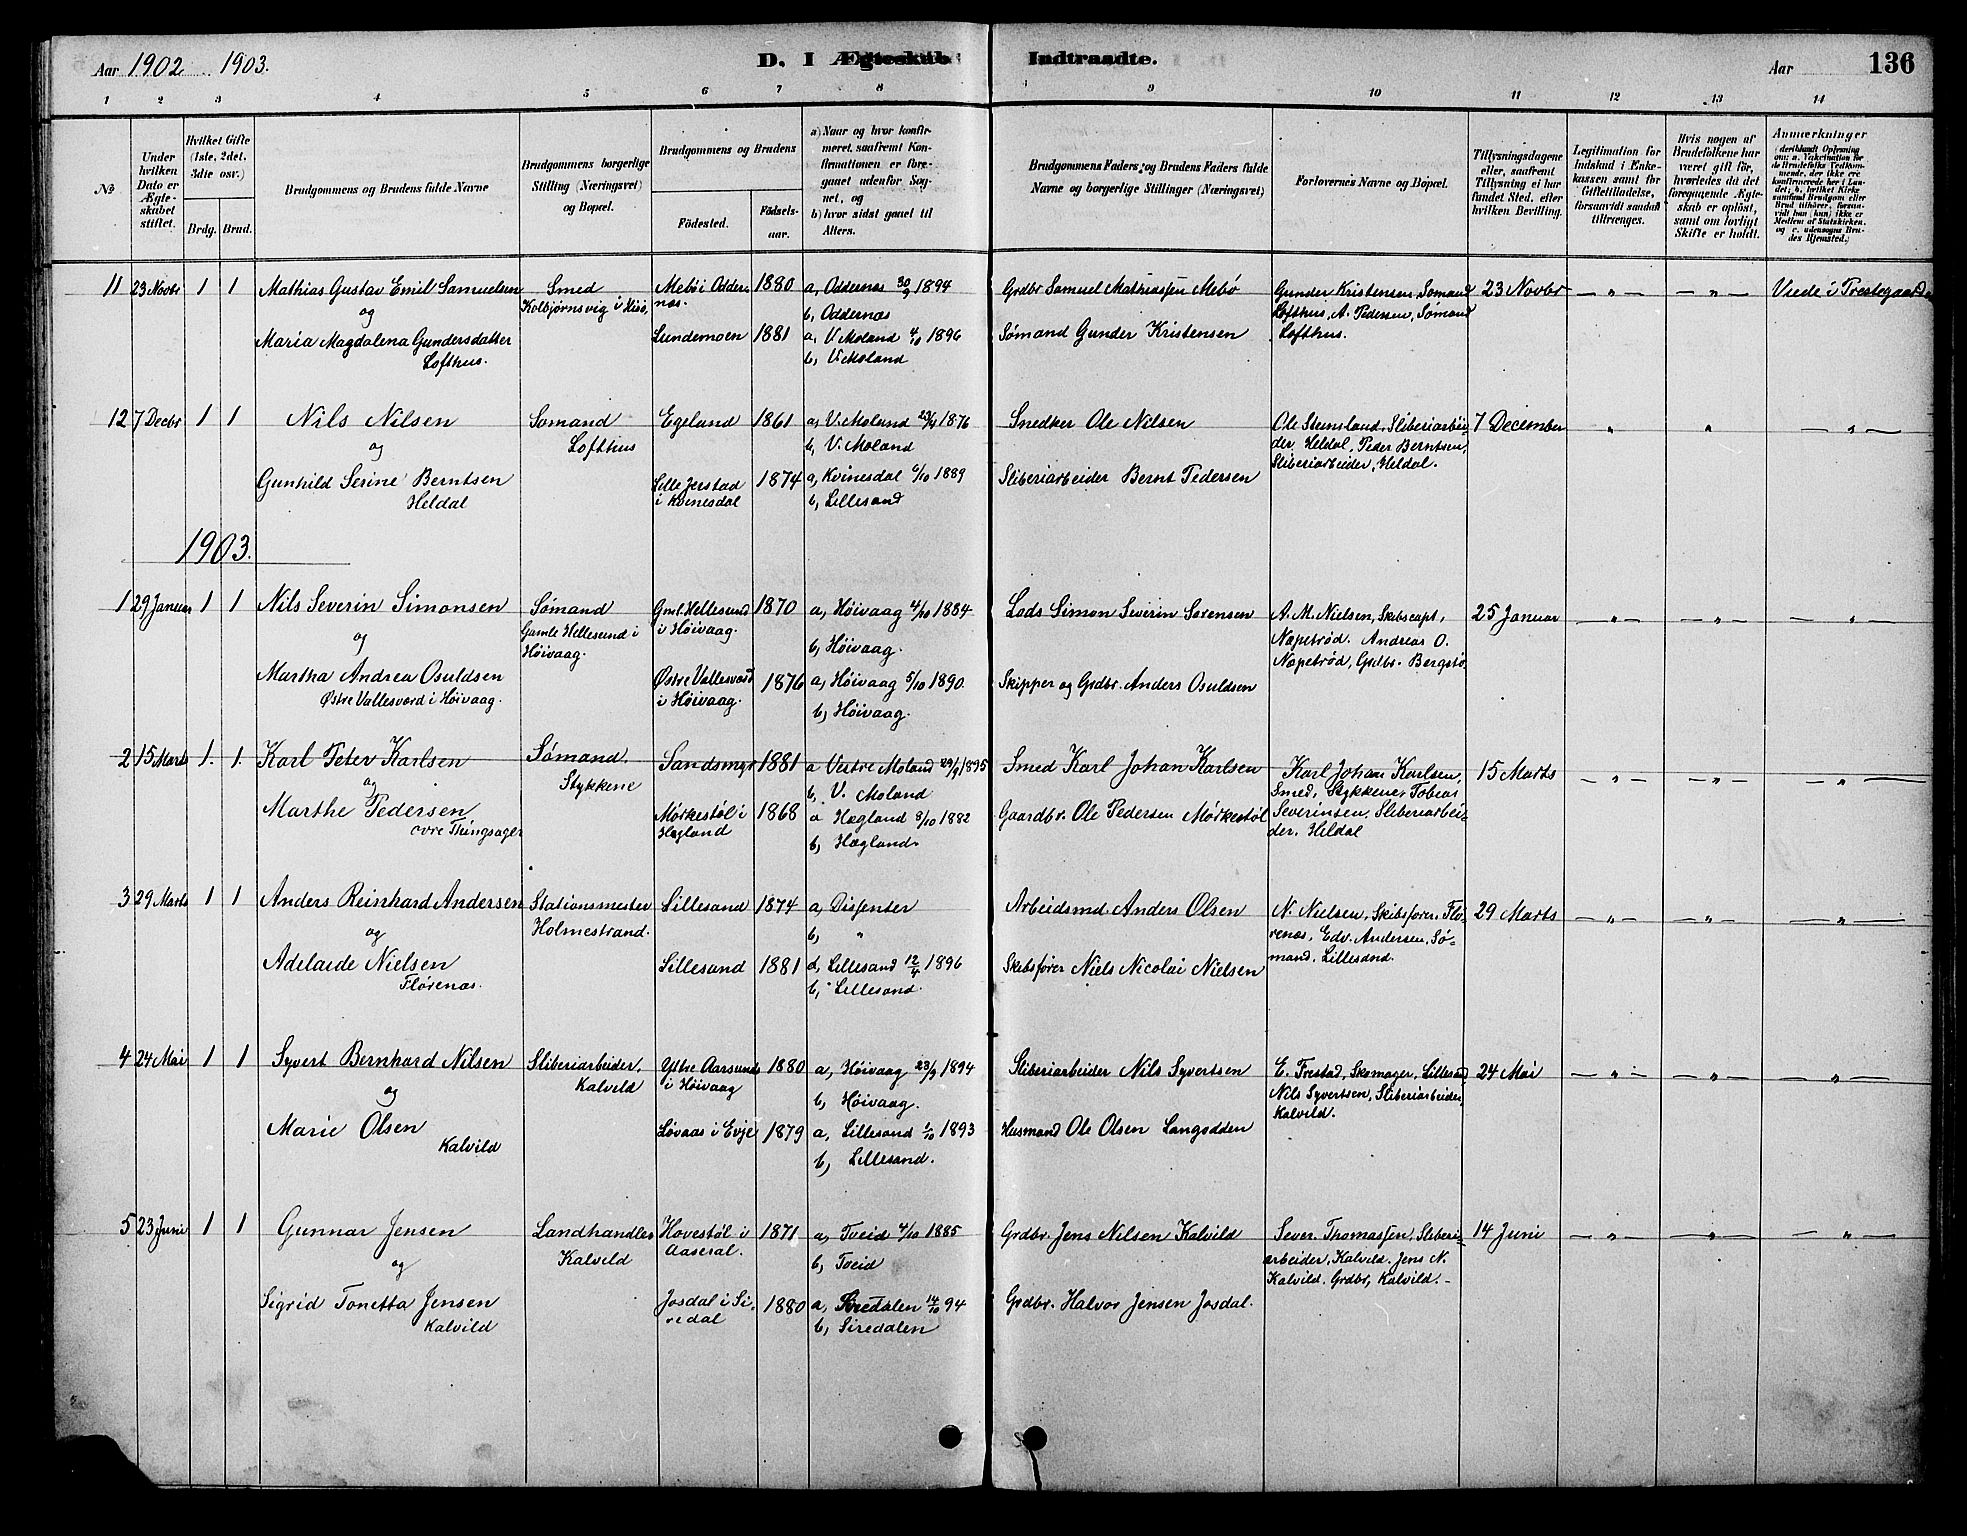 Aar 1902 1903.
D. I Ægteskab Indtraadte.
Aar
136
1 2 3 4 5 6 7 8 9 10 11 12 13 14
No
Under hvilken Dato er Ægteskabet stiftet.
Hvilket Gifte (1ste, 2det, 3die osv.)
Brdg. Brud.
Brudgommens og Brudens fulde Navne
Brudgommens borgerlige Stilling (Næringsvei) og Bopæl.
Brudgommens og Brudens
Fødested.
Fødselsaar.
a) Naar og hvor konfirmeret, saafremt Konfirmationen er foregaaet udenfor Sognet, og
b) hvor sidst gaaet til Alters.
Brudgommens Faders og Brudens Faders fulde Navne og borgerlige Stillinger (Næringsvei)
Forlovernes Navne og Bopæl.
Tillysningsdagene eller, saafremt Tillysning ei har fundet Sted, efter hvilken Bevilling.
Legitimation for Indskud i Enkekassen samt for Giftetilladelse, forsaavidt saadan tiltrænges.
Hvis nogen af Brudefolkene har været gift før, hvorledes da det foregaaende Ægteskab er opløst, samt om lovligt Skifte er holdt.
Anmærkninger (deriblandt Oplysning om: a. Vakcination for de Brudefolks Vedkommende, der ikke ere konfirmerede her i Landet, b. hvilket Kirkesamfund Brudgom eller Brud tilhører, forsaavidt han (hun) ikke er Medlem af Statskirken, og c. udensogns Brudes Hjemsted.)
11 23 Novbr 1 1 Mathias Gustav Emil Samuelsen Smed Mebø i Odder- 1880 a, Oddernæs 30/9 1894 Grdbr Samuel Mathiassen Mebø Gunder Kristensen, Sømand 23 Novbr — „ — — „ — Viede i Prestegaarden
og Kolbjørnsvig i Hisø, næs. b, Oddernæs Lofthus, A. Pedersen, Sømand
Maria Magdalena Gundersdatter Lundemoen 1881 a, V. Moland 4/10 1896 Sømand Gunder Kristensen Lofthus.
Lofthus. b, V. Moland
12 7 Decbr 1 1 Nils Nilsen Sømand Egeland 1861 a, V. Moland 23/4 1876 Snedker Ole Nilsen Ole Stemsland, Sliberiarbei- 7 December „ „ — „ —
og Lofthus b, V. Moland der, Heldal, Peder Berntsen,
Gunhild Serine Berntsen Lille Jerstad 1874 a, Kvinesdal 6/10 1889 Sliberiarbeider Bernt Pedersen Sliberiarbeider, Heldal.
Heldal i Kvinesdal b, Lillesand
1903.
1 29 Januar 1 1 Nils Severin Simonsen Sømand Gml. Hellesund 1870 a, Høivaag 4/10 1884 Lods Simon Severin Sørensen A. M. Nielsen, Skibscapt, 25 Januar — „ — — „ — — „ —
og Gamle Hellesund i i Høivaag. b, Høivaag. Napetrød. Andreas O.
Høivaag. Napetrød, Grdbr. Bergstø.
Martha Andrea Osuldsen Østre Vallesverd 1876 a, Høivaag 5/10 1890. Skipper og Grdbr. Anders Osuldsen
Østre Vallesverd i Høivaag. i Høivaag. b, Høivaag.
2 15 Marts 1. 1. Karl Peter Karlsen Sømand, Sandsmyr 1881 a Vestre Moland 29/9 1895 Smed Karl Johan Karlsen Karl Johan Karlsen, 15 Marts — „ — — „ — — „ —
og Stykkene b, V. Moland Smed, Stykkene, Tobias
Marthe Pedersen Mørkestøl i 1868 a Hægland 8/10 1882 Gaardbr. Ole Pedersen Mørkestøl Severinsen, Sliberiarbei-
øvre Thingsager Hægland b, Hægland. der, Heldal
3 29 Marts 1 1 Anders Reinhard Andersen Stationsmester Lillesand 1874 a, Dissenter Arbeidsmd. Anders Olsen N. Nielsen, Skibsfører, Flø- 29 Marts — „ — — „ — — „ —
og Holmestrand. b, „ renæs, Edv. Andersen, Sø-
Adelaide Nielsen Lillesand 1881 a, Lillesand 12/4 1896 Skibsfører Niels Nicolai Nielsen mand, Lillesand.
Flørenæs. b, Lillesand.
4 24 Mai 1 1 Syvert Bernhard Nilsen Sliberiarbeider, Ytre Aarsund 1880 a, Høivaag 23/9 1894 Sliberiarbeider Nils Syvertsen E. Frestad, Skomager, Lillesand 24 Mai — „ — — „ — — „ —
og Kalvild i Høivaag b, Høivaag. Nils Syvertsen, Sliberiarbeider,
Marie Olsen Løvaas i Evje 1879 a, Lillesand 1/10 1893 Husmand Ole Olsen Langodden Kalvild.
Kalvild b, Lillesand.
5 23 Juni 1 1 Gunnar Jensen Landhandler Hovestøl i 1871 a, Tveid 4/10 1885 Grdbr. Jens Nilsen Kalvild Sever. Thomassen, Sliberi- 14 Juni — „ — — „ — — „ —
og Kalvild Aaseral. b, Tveid arbeider, Kalvild. Jens N.
Kalvild. Grdbr, Kalvild. -
Sigrid Tonetta Jensen Josdal i Si- 1880 a, Siredalen 14/10 94 Grdbr. Halvor Jensen Josdal.
Kalvild redal b, Siredalen